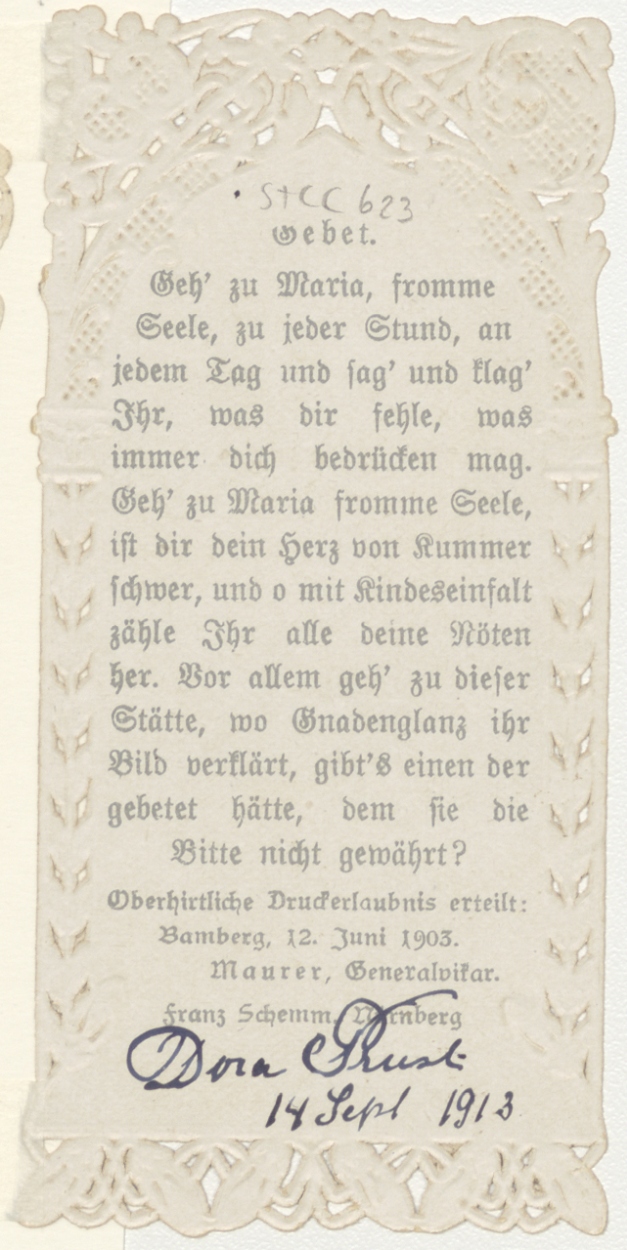 StCC 623
Gebet.
Geh' zu Maria, fromme
Seele, zu jeder Stund, an
jedem Tag und sag' und klag'
Ihr, was dir fehle, was
immer dich bedrücken mag.
Geh' zu Maria fromme Seele,
ist dir dein Herz von Kummer
schwer, und o mit Kindeseinfalt
zähle Ihr alle deine Nöten
her. Vor allem geh' zu dieser
Stätte, wo Gnadenglanz ihr
Bild verklärt, gibt's einen der
gebetet hätte, dem sie die
Bitte nicht gewährt?
Oberhirtliche Druckerlaubnis erteilt:
Bamberg, 12. Juni 1903.
Maurer, Generalvikar.
Franz Schemm, Nürnberg
Dora
14 Sept 1913